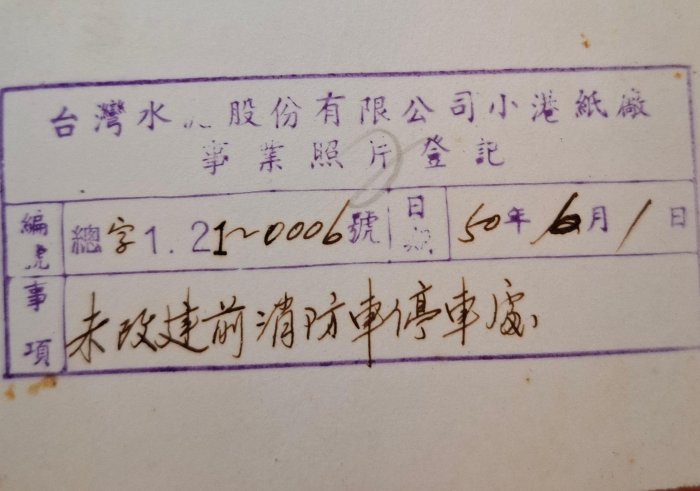 台灣水 股份有限公司小港紙廠
事業照片登記
編號 總字1.21~0006號 日 50年6月1日
事項 未改建前消防車停車處